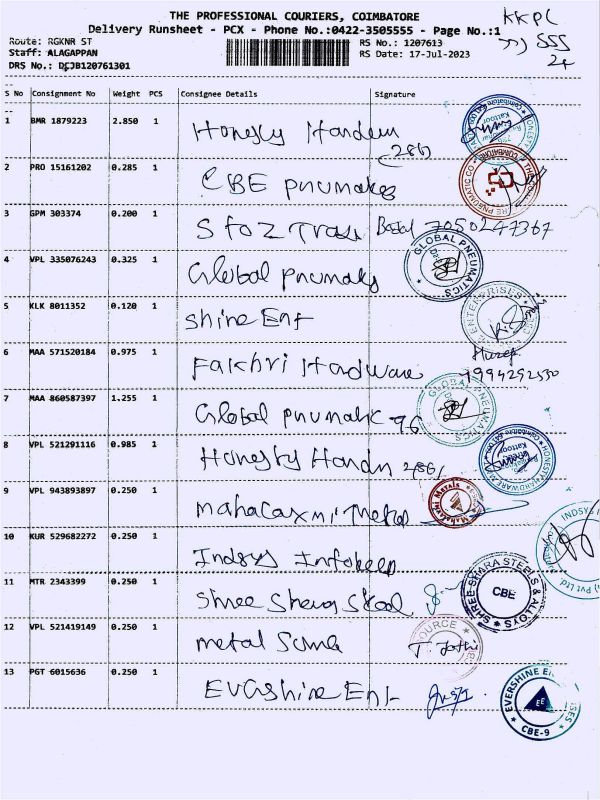 THE PROFESSIONAL COURIERS, COIMBATORE
Delivery Runsheet - PCX - Phone No.:0422-3505555 - Page No.:1
KKPC
Route: RGKNR ST
RS No.: 1207613
555
Staff: ALAGAPPAN
RS Date: 17-Jul-2023
24
DRS No.: DCJB120761301
S No Consignment No Weight PCS Consignee Details Signature
1 BMR 1879223 2.850 1 Honesty Hardwe
2 PRO 15161202 0.285 1 CBE pnumakes
3 GPM 303374 0.200 1 7050247367
4 VPL 335076243 0.325 1 Global pnumaks GLOBAL PNEUMATICS
5 KLK 8011352 0.120 1 Shine Ent ENTERPRISES
6 MAA 571520184 0.975 1 Fakhri Hardware
7 MAA 860587397 1.255 1 Global pnumatic 96 GLOBAL PNEUMATICS
8 VPL 521291116 0.985 1 Honesty Hardn
9 VPL 943893897 0.250 1 mahalaxmi metal Mahalaxmi Metals
10 KUR 529682272 0.250 1 Indsys INDSYS Pvt Ltd
11 MTR 2343399 0.250 1 Shree Shara Steel SHREE SHARA STEELS & ALLOYS CBE
12 VPL 521419149 0.250 1 metal T. Jothi
13 PGT 6015636 0.250 1 Evershine Ent EVERSHINE EE CBE-9